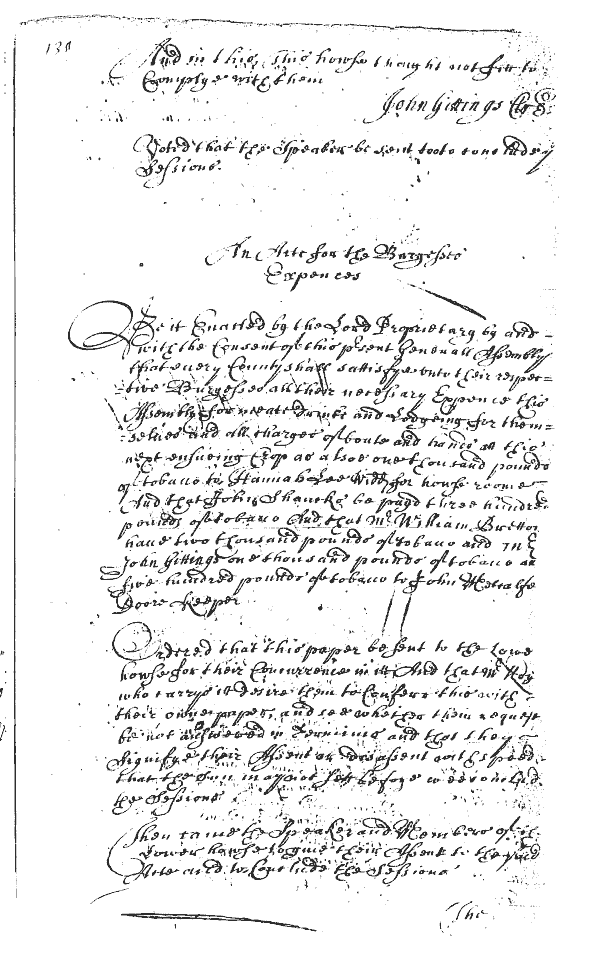 130
And in this, this howse thought not fitt to
Complye with them
John Gittings Clrk
Voted that the Speaker be sent to to conclude y
Sessions.
An Acte for the Burgesses
Expences
Be it Enacted by the Lord Proprietary by and
with the Consent of this present Generall Assembly
that every County shall sattisfye unto their respec=
=tive Burgesses all their necessary Expence this
Assembly for meate drinke and Lodgeing for them=
=selves and all charges of boate and hands at the
next ensueing Crop as also one thousand pounds
of tobacco to Hannah Lee Widd for howse roome
And that John Shancks be payd three hundred
pounds of tobacco And that Mr William Bretton
have two thousand pounds of tobacco and Mr
John Gittings one thousand pounds of tobacco an
five hundred pounds of tobacco to John Metcalfe
Doore keeper
Ordered that this paper be sent to the Lowe
howse for their Concurrence in it And that Mr
who carrys it desire them to Conferr this with
their owne paper, and see whether them request
be not answered in Terminis and that they
Signifye their Assent or dissassent with speed
that the Sun may not sett before wee conclude
the Sessions
Then came the Speaker and Members of the
Lower howse to give their Assent to the said
Acte and to Conclude the Sessions
The